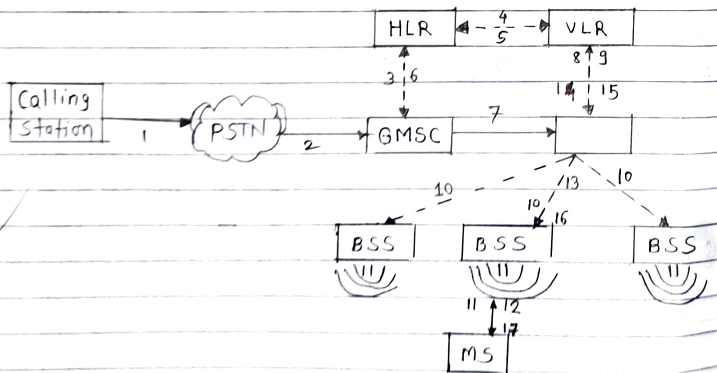 HLR
4
5
VLR
3
6
8
9
14
15
Calling
Station
1
PSTN
2
GMSC
7
10
10
13
16
10
BSS
BSS
BSS
11
11
11
11
12
17
MS